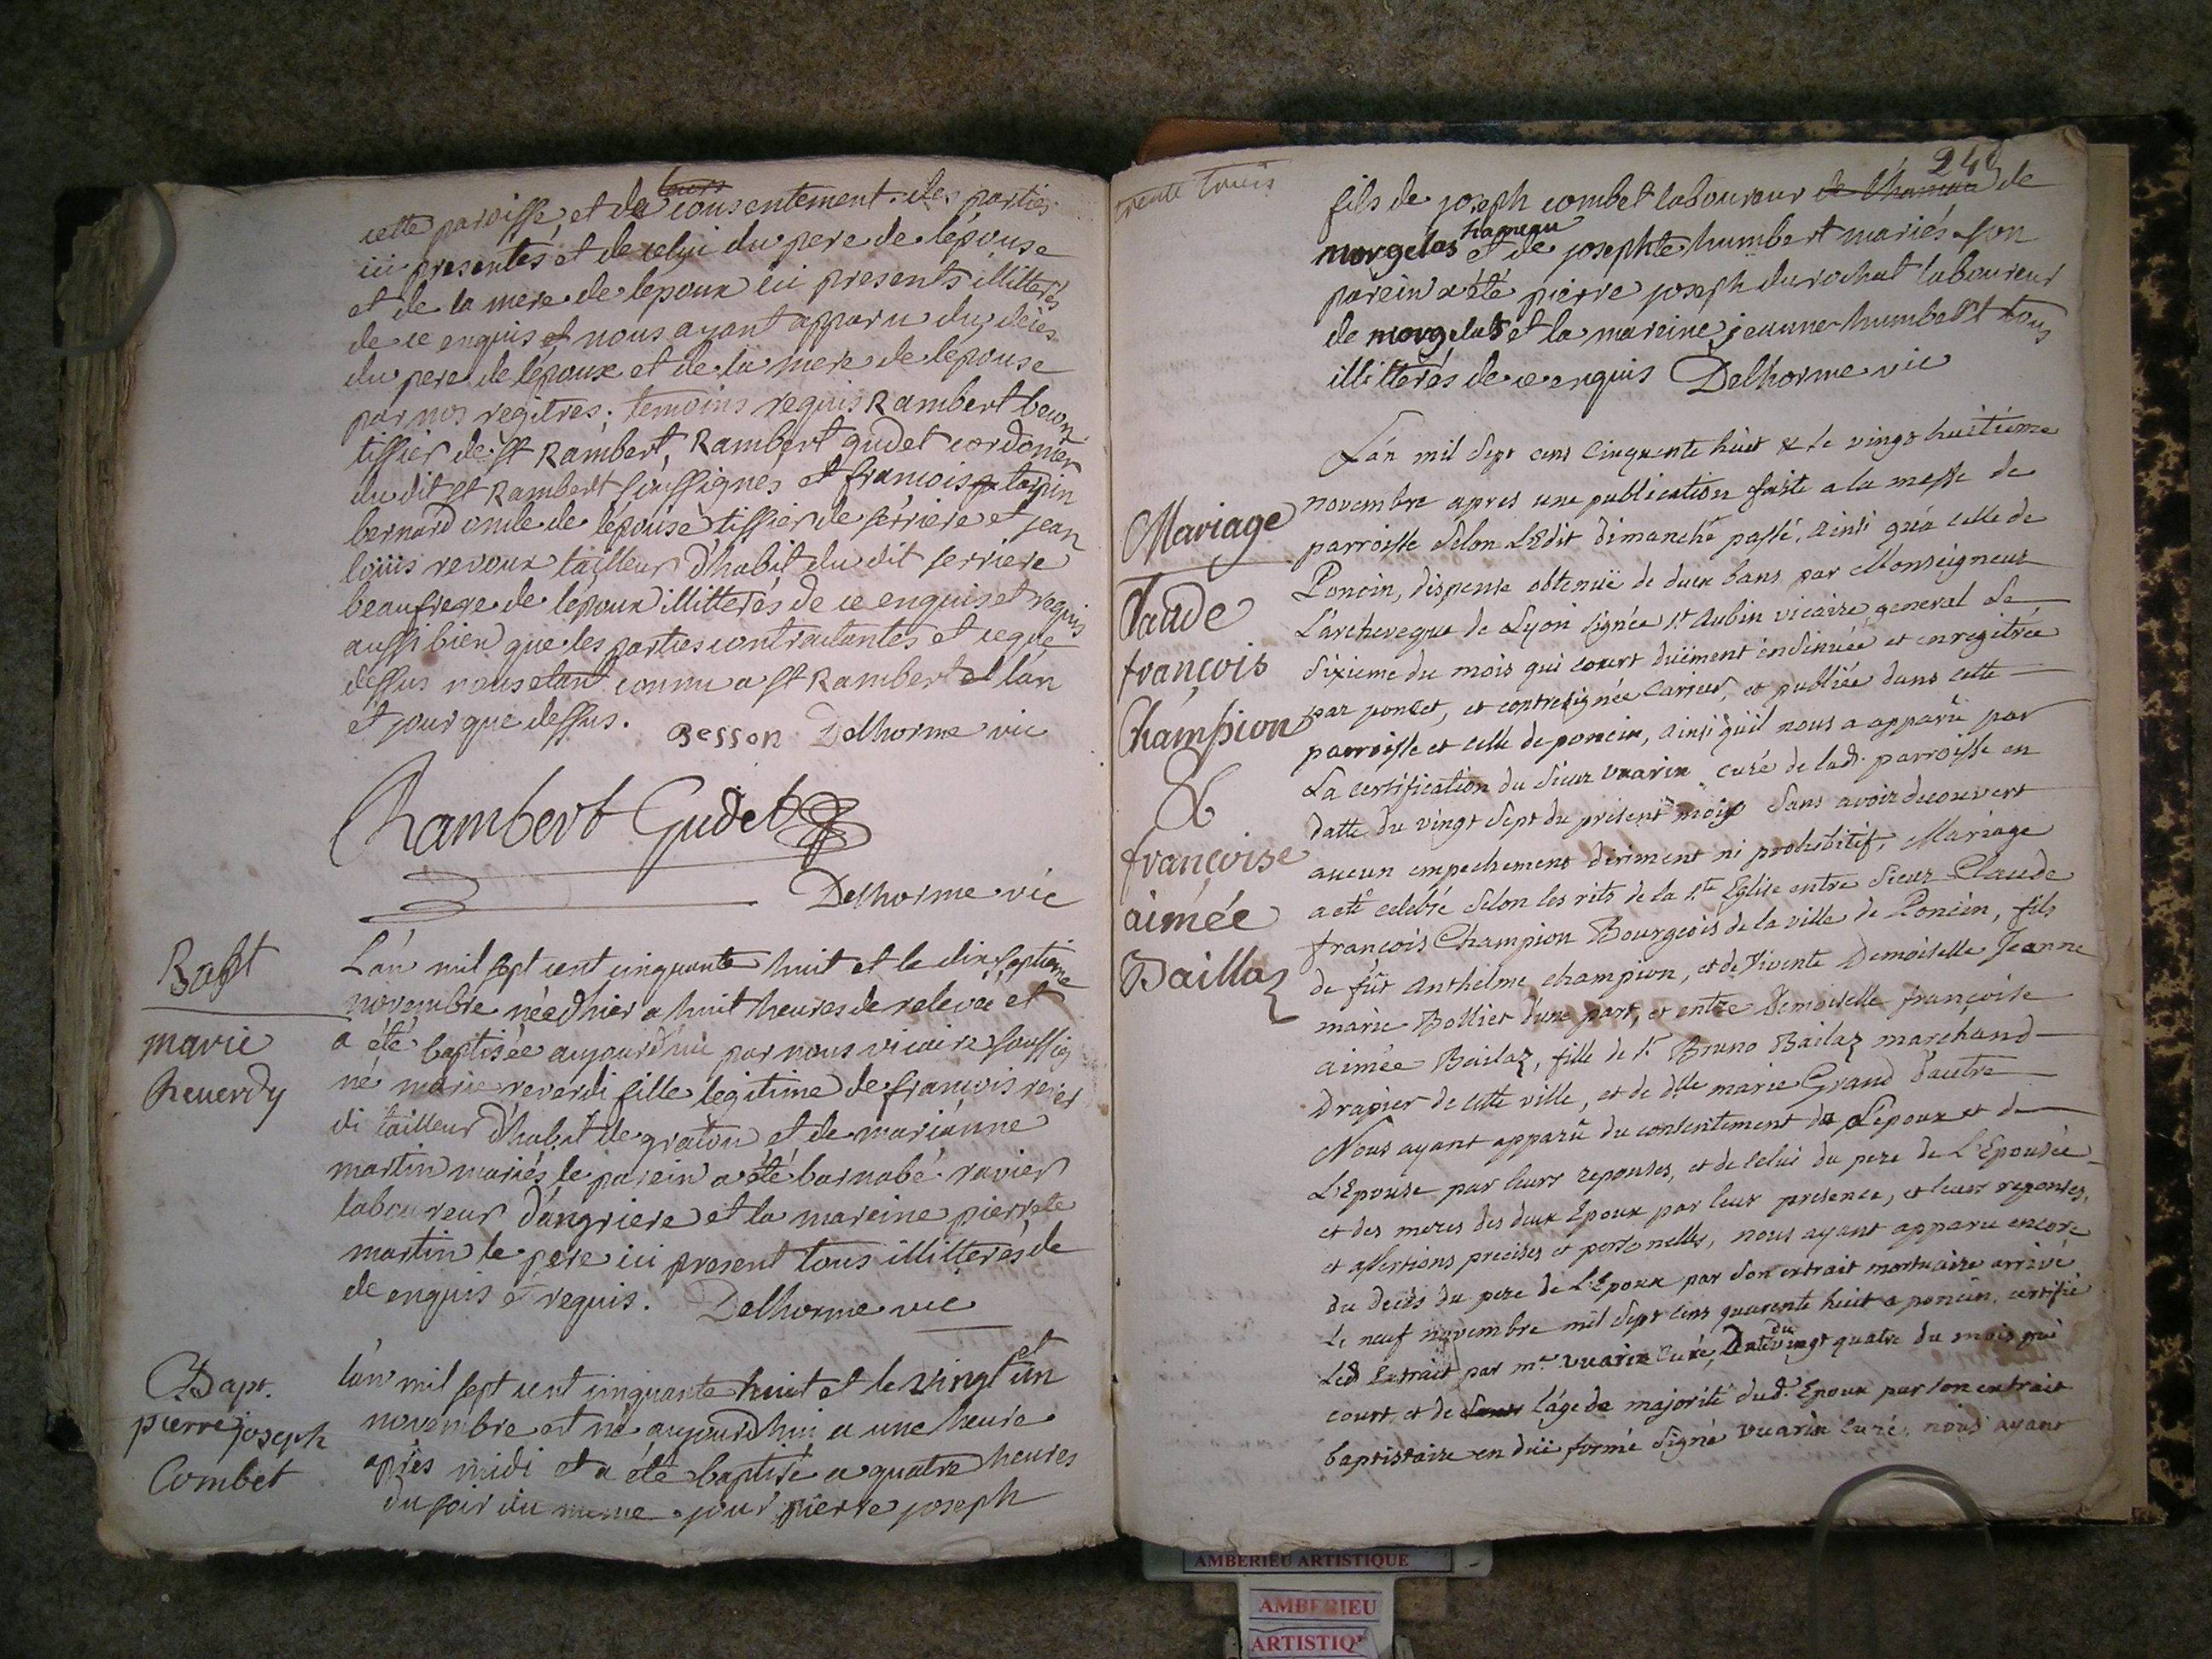 cette paroisse, et de leurs consentement des parties
ici presentes et de celui du pere de lepouse
et de la mere de lepoux ici presents illitterés
de ce enquis et nous ayant apparu du décés
du pere de lépoux et de la mere de lepouse
par nos regitres. temoins requis Rambert beuon
tissier de st Rambert, Rambert gudet cordonier
du dit st Rambert soussignés et francois tarpin
bernard oncle de lepouse tissier de serriere et jean
loüis revoux tailleur d'habit du dit serriere
beaufrere de lepoux illitterés de ce enquis et requis
aussi bien que les parties contractantes et ce que
dessus nous etant connu a st Rambert et lan
et jour que dessus. Besson Delhorme vic
Rambert Gudet
Delhorme vic
Bapt
marie
Reverdy
L'an mil sept cent cinquante huit et le dix septieme
novembre née d'hier a huit heures de relevée et
a été baptisée aujourd'hui par nous vicaire soussig
né marie reverdi fille legitime de francois rever
di tailleur d'habit de graton et de marianne
martin mariés le parein a été barnabé ravier
laboureur d'angriere et la mareine pierrete
martin le pere ici present tous illitterés de
de enquis et requis. Delhorme vic
Bapt.
pierre joseph
Combet
l'an mil sept cent cinquante huit et le vingt et un
novembre est né aujourdhui a une heure
après midi et a été baptisé a quatre heures
du soir du meme jour pierre joseph
trente trois
240
fils de joseph combet laboureur de l'hameau de
morgelas hameau et de josephte humbert mariés son
parein a été pierre joseph durochat laboureur
de morgelas et la mareine jeanne humbert tous
illitterés de ce enquis Delhorme vic
Mariage
Claude
françois
Champion
&
françoise
aimée
Baillaz
L'an mil sept cens cinquante huit & le vingt huitiéme
novembre apres une publication faite a la messe de
parroisse selon L'Edit dimanche passé, ainsi qu'a celle de
Poncin, dispense obtenuë de deux bans par Monseigneur
L'archeveque de Lyon signée st Aubin vicaire general Le
sixieme du mois qui court düement insinuée et enregitrée
par poncet, et contresignée Carrier, et publiée dans cette
parroisse et celle de poncin, ainsi qu'il nous a apparû par
La certification du sieur vuarin curé de lad. parroisse en
datte du vingt sept du présent mois sans avoir decouvert
aucun empechement diriment ni prohibitif, Mariage
a eté celebré selon les rits de la Ste Eglise entre sieur Claude
françois Champion Bourgeois de la ville de Poncin, fils
de fût Anthelme champion, et de vivente Demoiselle Jeanne
marie Bolliet d'une part, et entre Demoiselle françoise
aimée Bailaz, fille de Sr Bruno Bailaz marchand
Drapier de cette ville, et de dlle marie Grand d'autre
Nous ayant apparû du consentement de L'époux et de
L'Epouse par leurs reponses, et de celui du pere de L'Epousée
et des meres des deux Epoux par leur presence, et leurs reponses,
et assertions precises et personelles, nous ayant apparu encore
du decés du pere de L'Epoux par son extrait mortuaire arrivé
Le neuf novembre mil sept cens quarante huit a poncin, certifié
Led Extrait par mr vuarin curé, Datté du vingt quatre du mois qui
court, et de l'age de majorité dud. Epoux par son extrait
baptistaire en düe forme signé vuarin curé, nous ayant
AMBERIEU ARTISTIQUE
AMBERIEU
ARTISTIQ